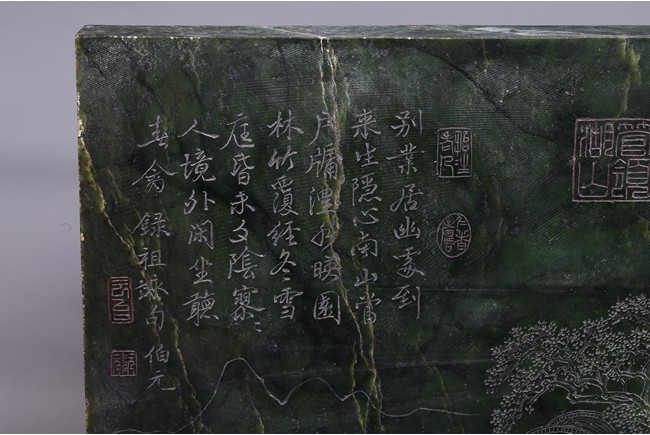 管領湖山
别業居幽處到
来生隐心南山當
户牖澧水映園
林竹覆經冬雪
庭昏未夕陰寥〻
人境外闲坐聽
春禽錄祖詠句伯元